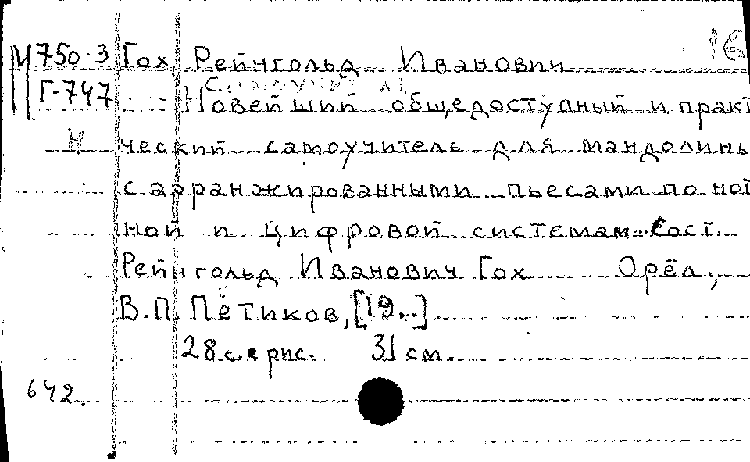 М 750-3 Гох Рейнгольд Иванович 16
Г-747 Новейший общедоступный и практи
Н ческий самоучитель для мандолины
с арранжированными пьесами по нот
ной и цифровой системам. Сост.
Рейнгольд Иванович Гох Орёл,
В.П. Петиков, [19..]
28 с. с рис. 31 см.
642